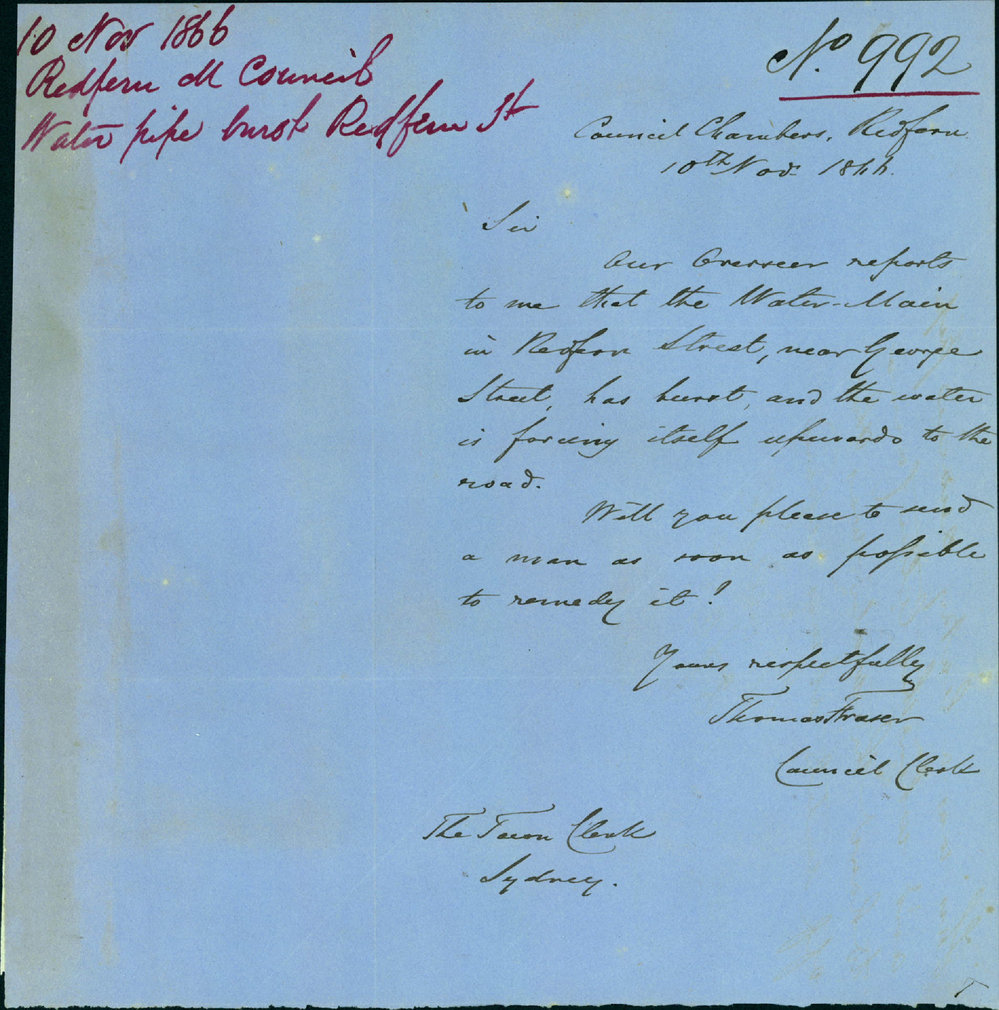 10 Nov 1866
Redfern M Council
Water pipe burst Redfern St
No. 992
Council Chambers, Redfern
10th Nov. 1866.
Sir
Our Overseer reports
to me that the Water-Main
in Redfern Street, near George
Street, has burst, and the water
is forcing itself upwards to the
road.
Will you please to send
a man as soon as possible
to remedy it?
Yours respectfully
Thomas Fraser
Council Clerk
The Town Clerk
Sydney.